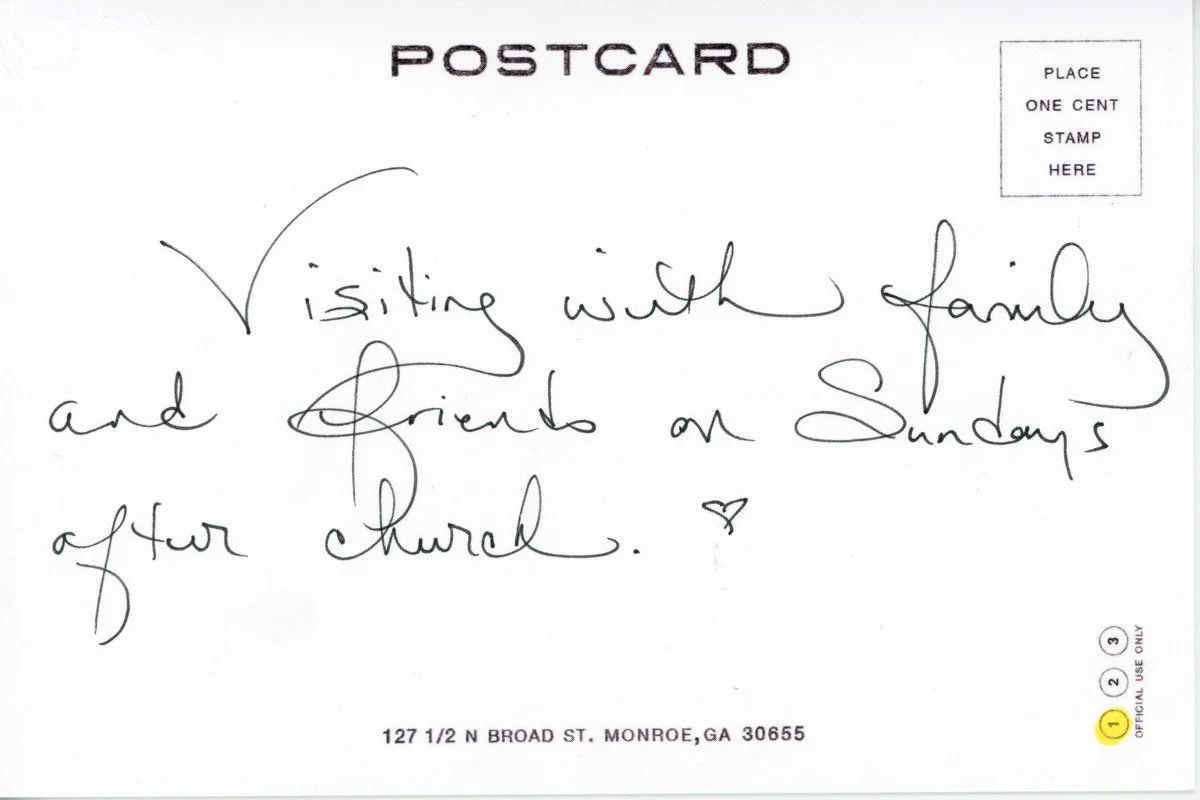 POSTCARD
PLACE
ONE CENT
STAMP
HERE
Visiting with family
and friends on Sundays
after church. ♡
1 2 3
OFFICIAL USE ONLY
127 1/2 N BROAD ST. MONROE,GA 30655